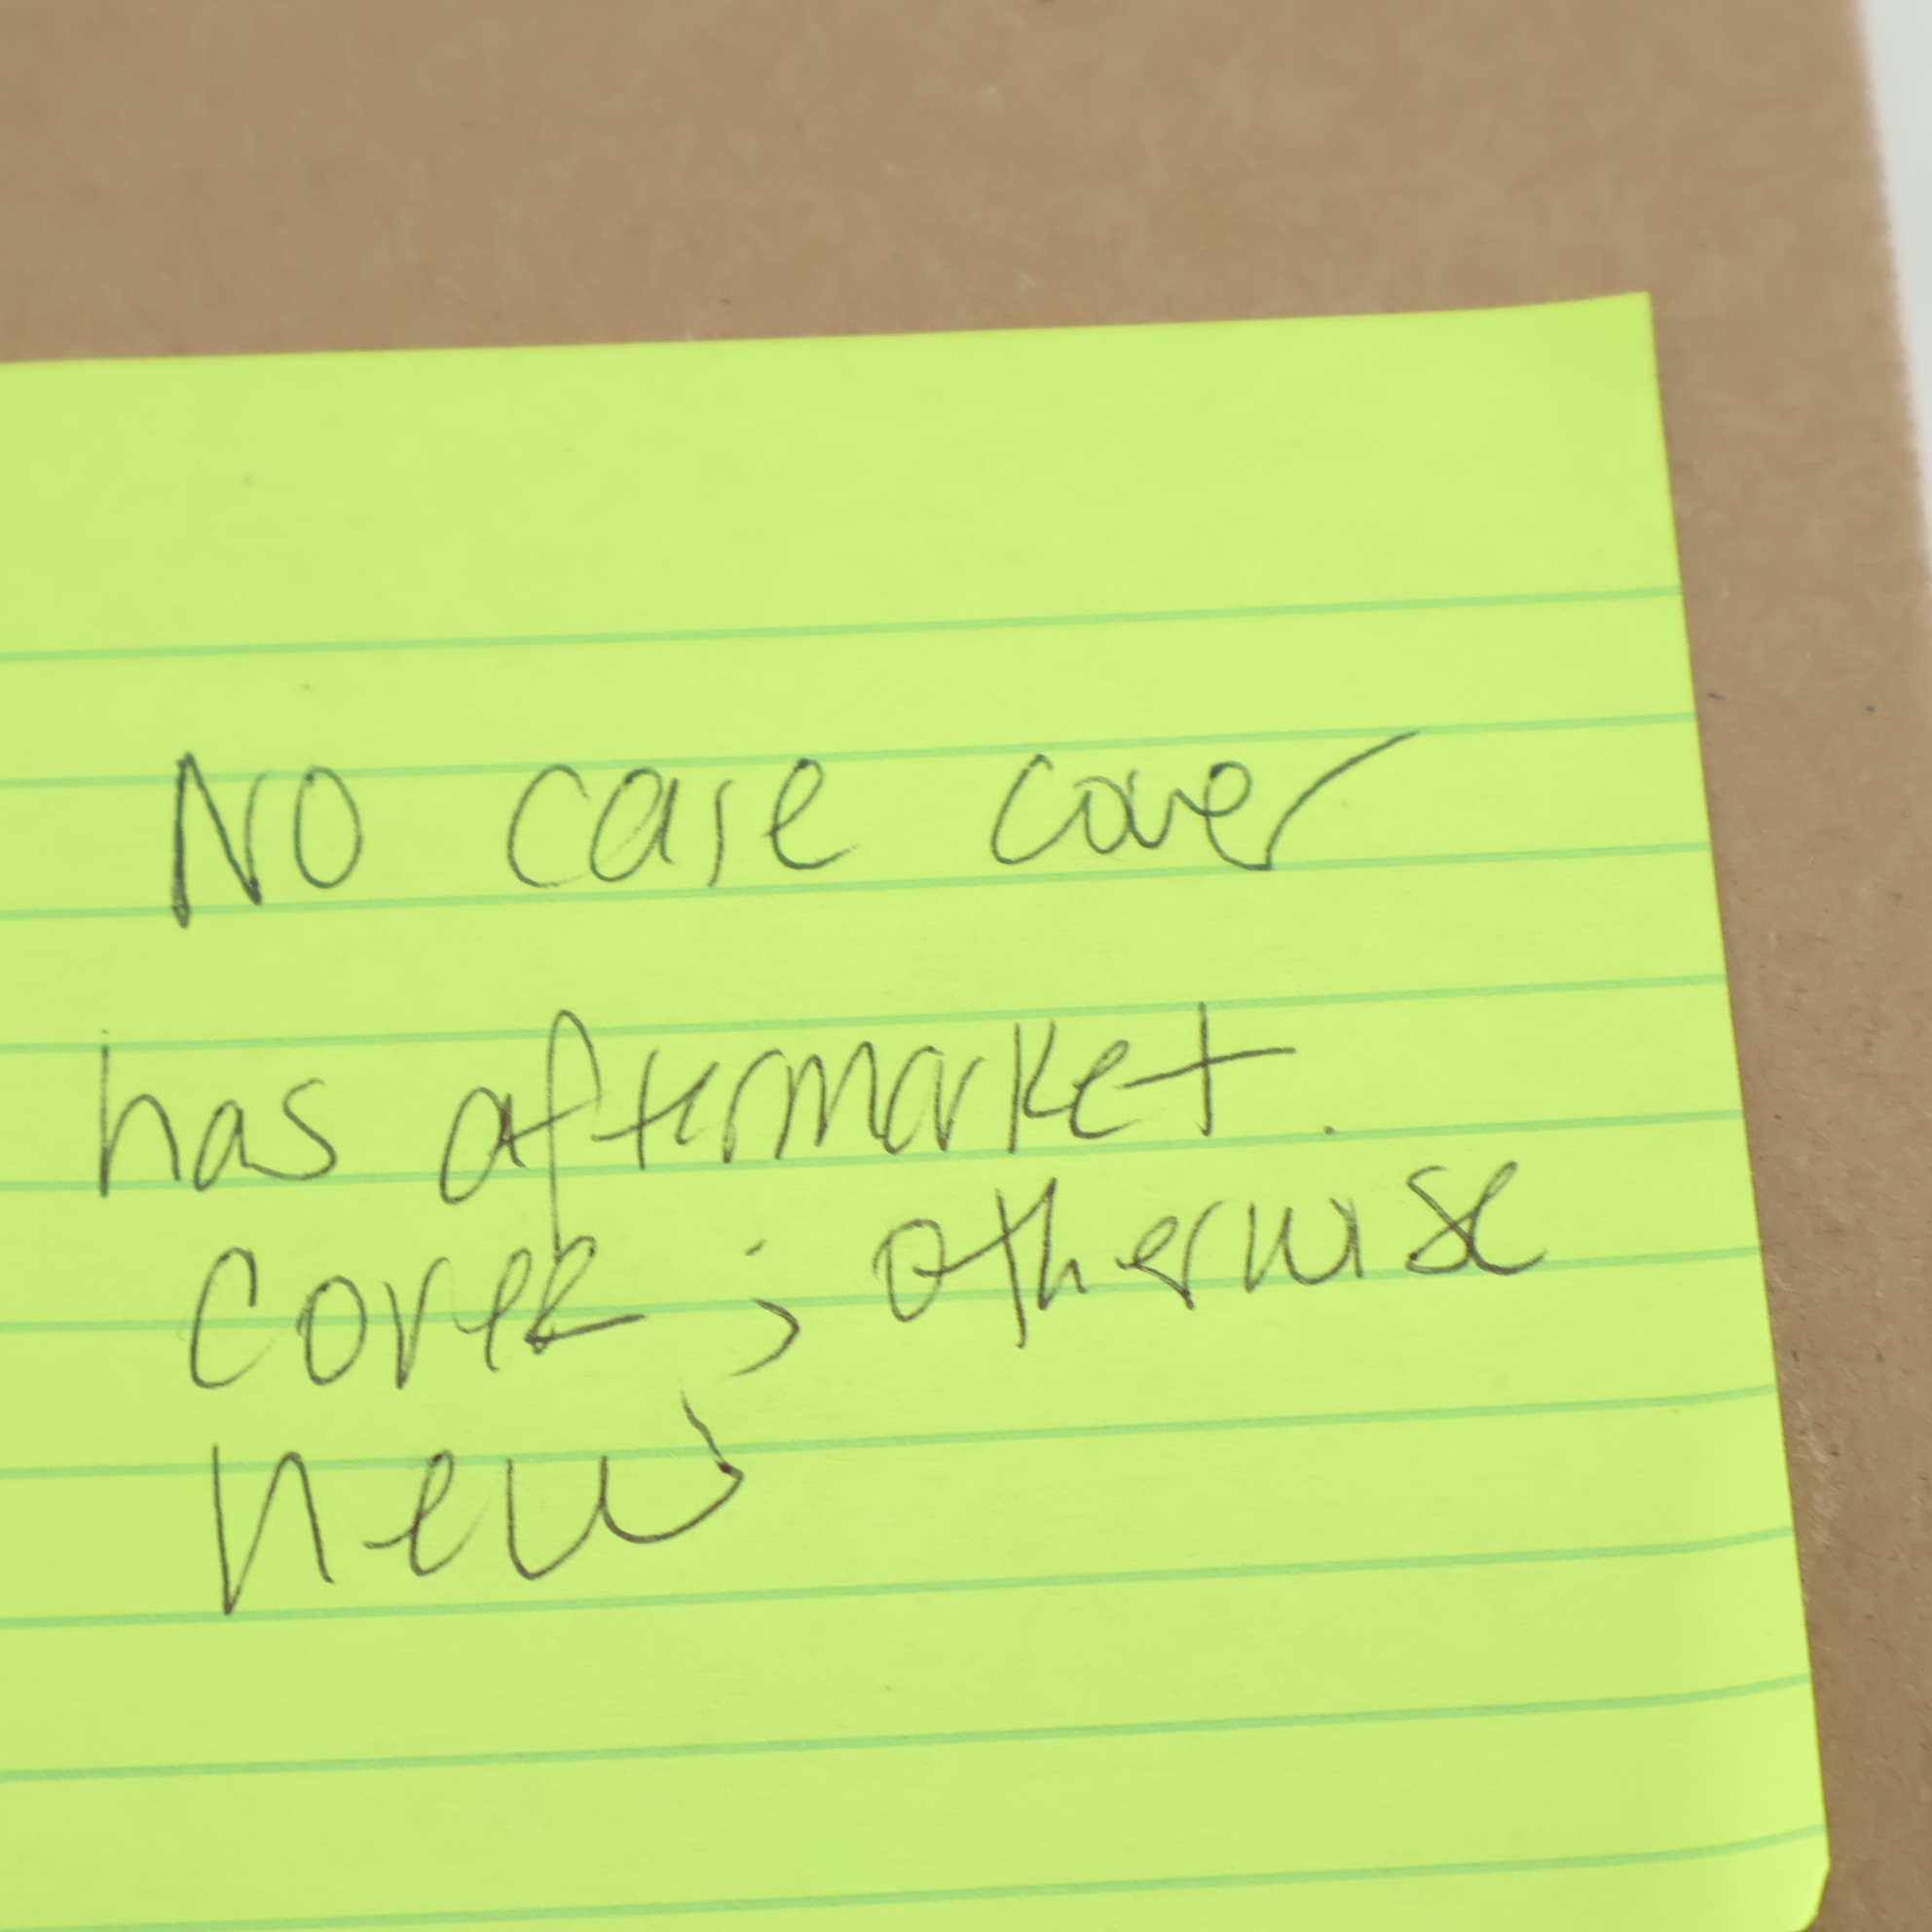 NO case cover
has aftermarket
cover; otherwise
new